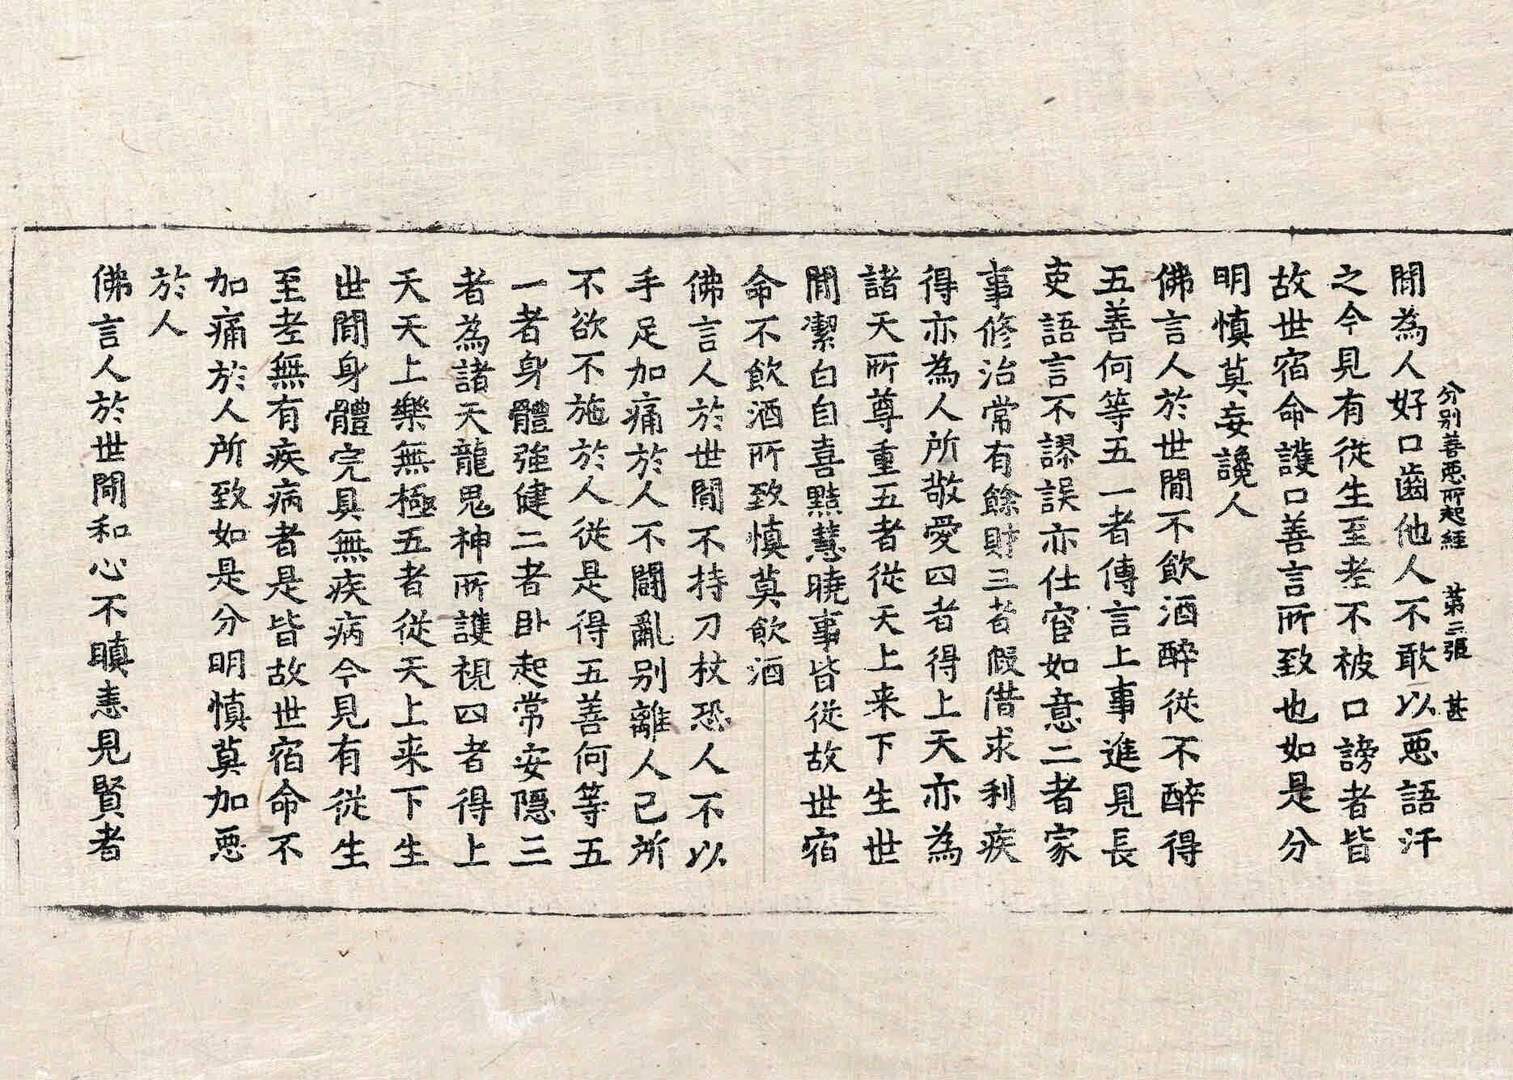 分别善惡所起經　第三張　甚
閒為人好口齒他人不敢以惡語汙
之今見有從生至老不被口謗者皆
故世宿命護口善言所致也如是分
明慎莫妄讒人
佛言人於世閒不飲酒醉從不醉得
五善何等五一者傳言上事進見長
吏語言不謬誤亦仕宦如意二者家
事修治常有餘財三者假借求利疾
得亦為人所敬愛四者得上天亦為
諸天所尊重五者從天上来下生世
閒潔白自喜黠慧曉事皆從故世宿
命不飲酒所致慎莫飲酒
佛言人於世閒不持刀杖恐人不以
手足加痛於人不鬪亂別離人己所
不欲不施於人從是得五善何等五
一者身體強健二者卧起常安隱三
者為諸天龍鬼神所護視四者得上
天天上樂無極五者從天上来下生
世閒身體完具無疾病今見有從生
至老無有疾病者是皆故世宿命不
加痛於人所致如是分明慎莫加惡
於人
佛言人於世閒和心不瞋恚見賢者